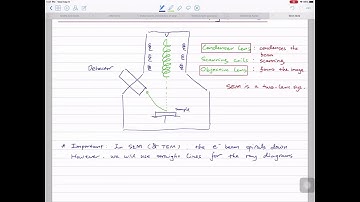 Condenser Lens : condenses the beam
Scanning coils : scanning
Objective Lens : forms the image
SEM is a two-lens sys.
Detector
sample
* Important: In SEM (& TEM), the e⁻ beam spirals down
However, we will use straight lines for the ray diagrams